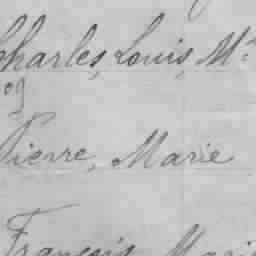 Charles, Louis, M
Pierre, Marie
François, Marie